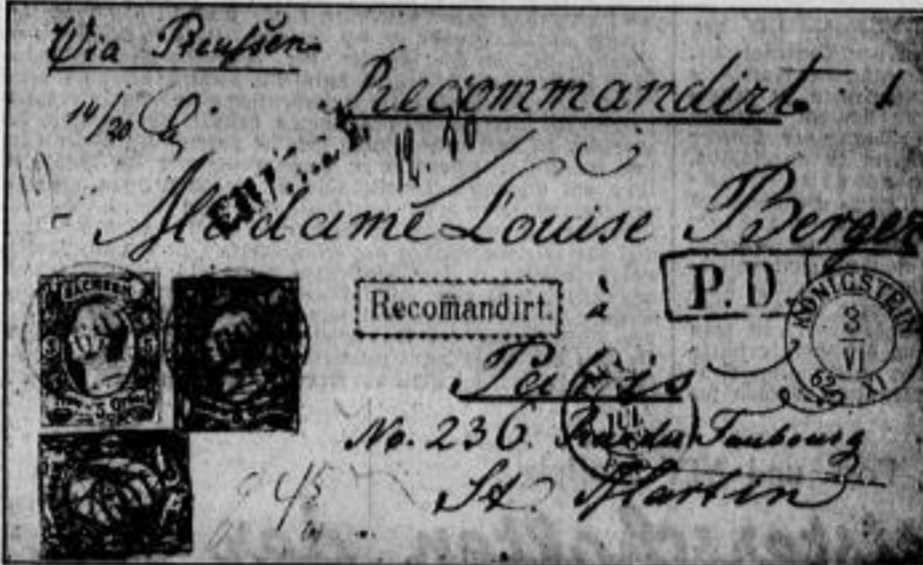 Via Preußen
Recommandirt
14/20
Madame Louise Berger
SACHSEN
Recomandirt.
à
P.D
KÖNIGSTEIN
3
VI
62
XI
Paris
No. 236. Rue du Faubourg
St. Martin